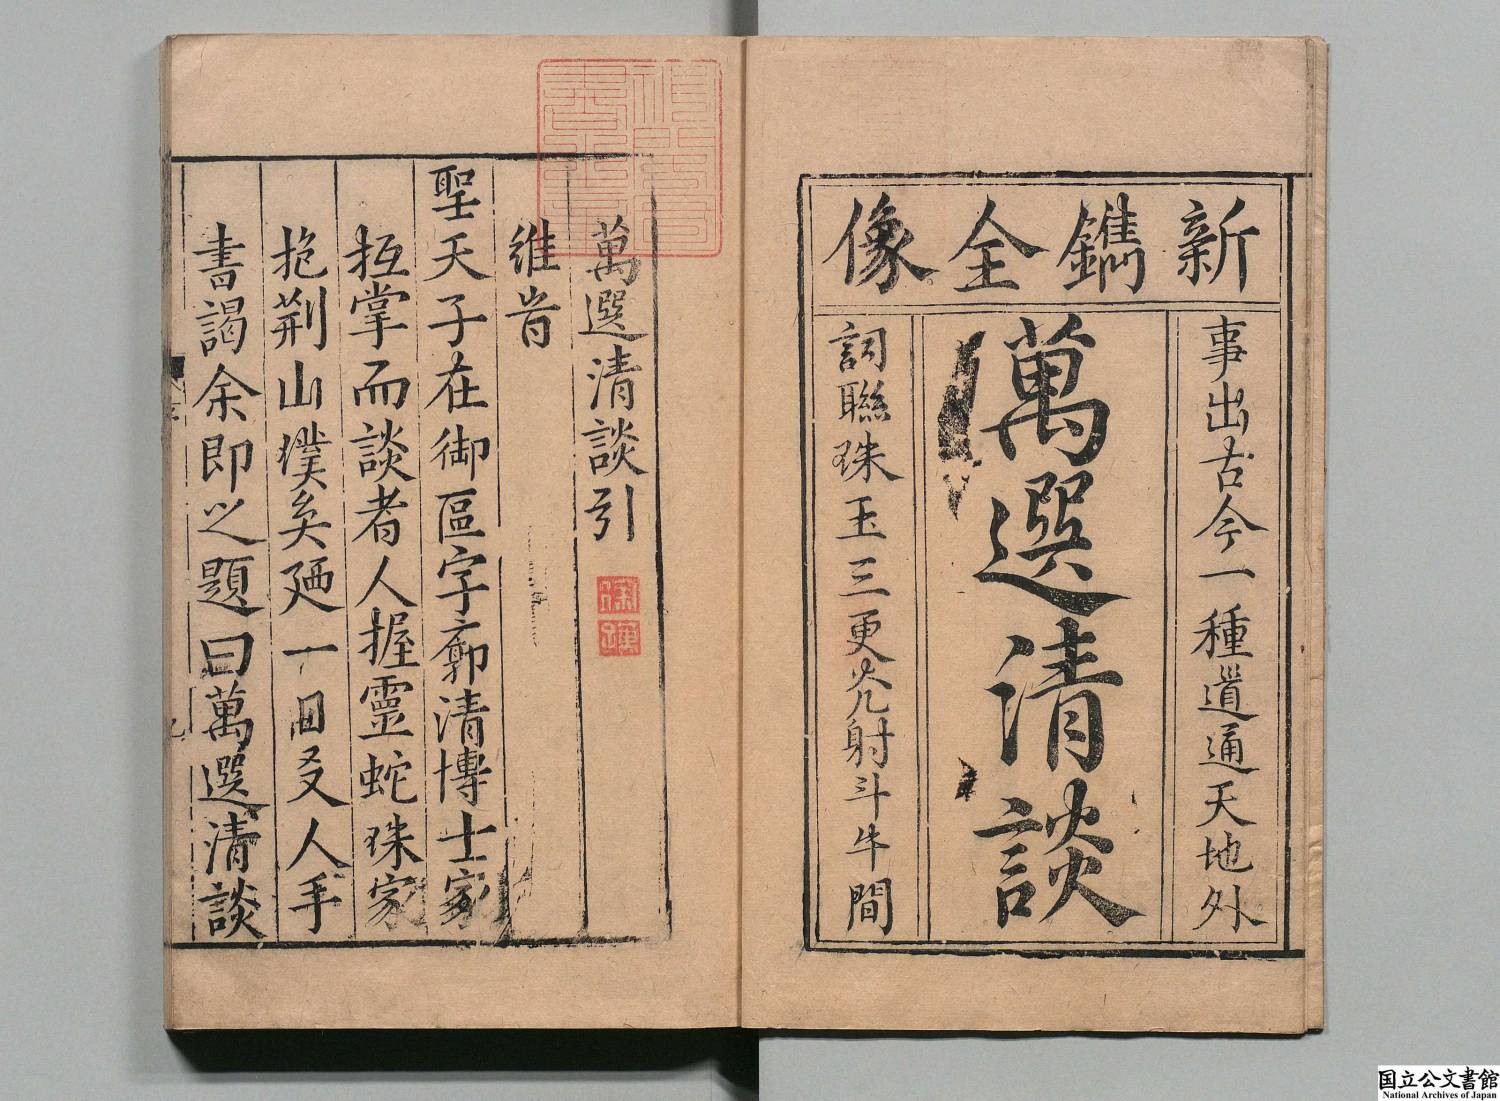 新鐫全像
事出古今一種道通天地外
萬選清談
詞聯珠玉三更光射斗牛間
萬選清談引
維旹
聖天子在御區宇廓清博士家
抵掌而談者人握靈蛇珠家
抱荆山璞矣廼一日友人手
書謁余即以題曰萬選清談
国立公文書館
National Archives of Japan